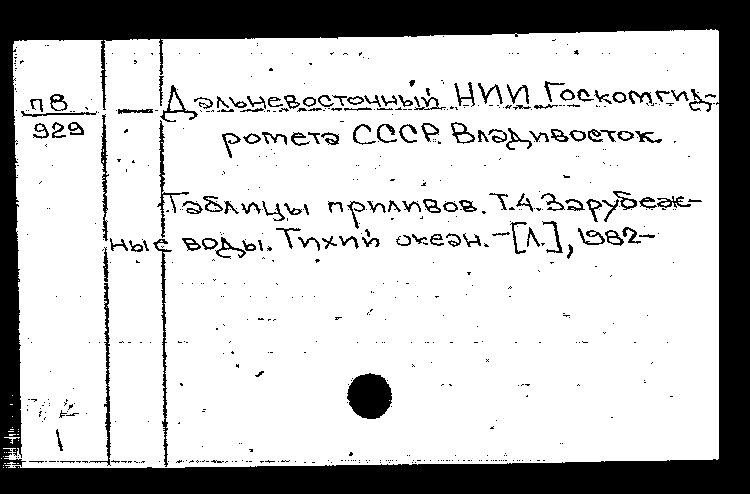 п8
929
Дальневосточный НИИ Госкомгид-
ромета СССР. Владивосток.
Таблицы приливов. Т.4. Зарубеж-
ные воды. Тихий океан. — [Л.], 1982—
1